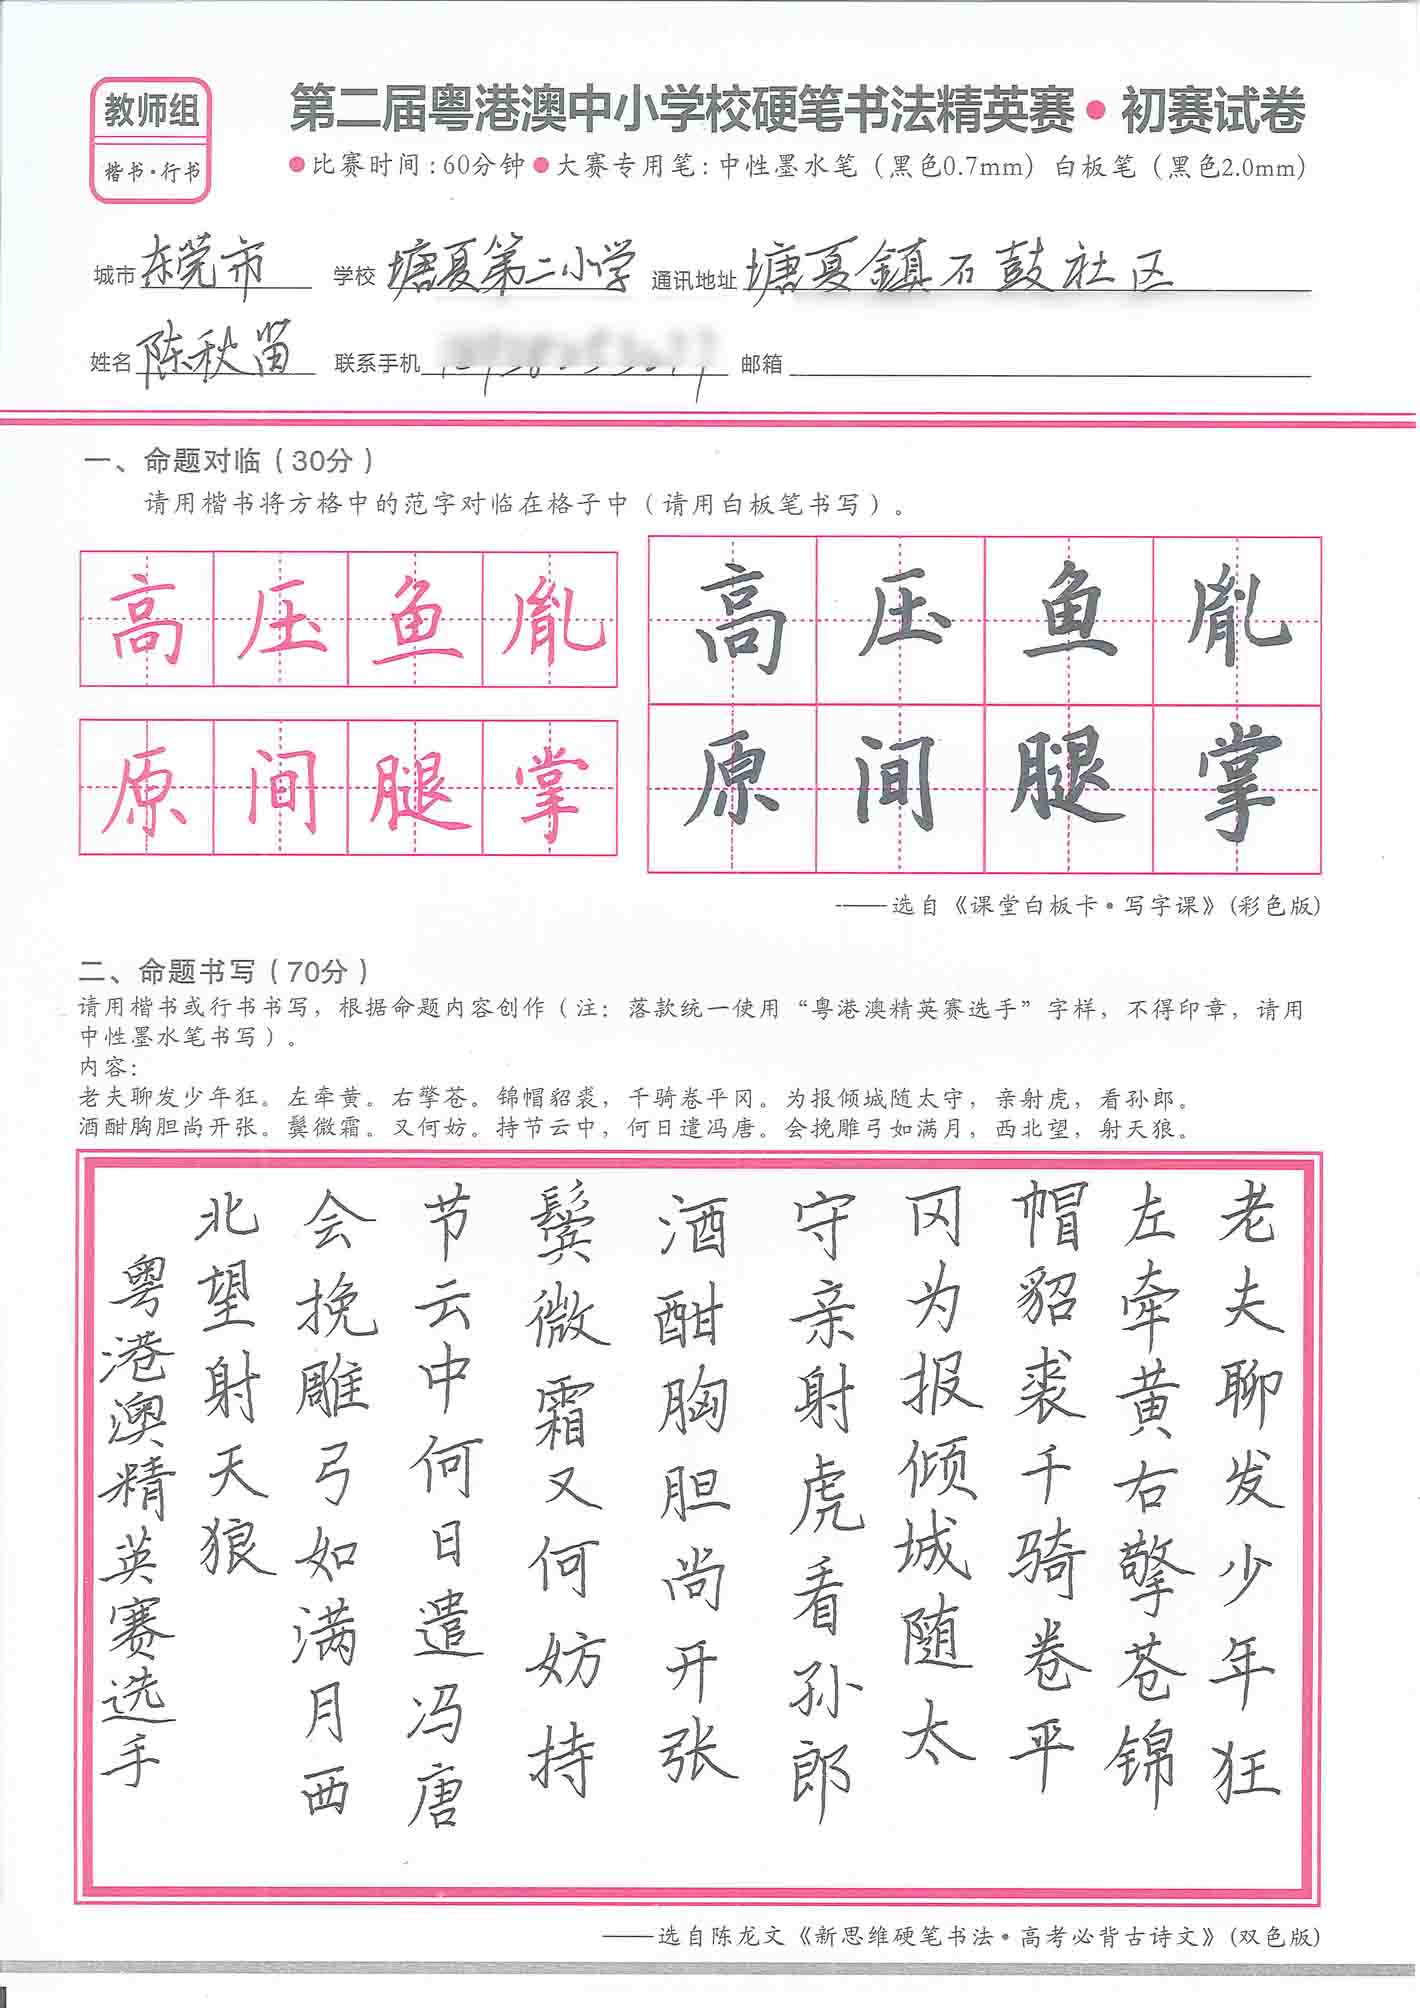 教师组
楷书·行书
第二届粤港澳中小学校硬笔书法精英赛·初赛试卷
●比赛时间:60分钟●大赛专用笔:中性墨水笔(黑色0.7mm)白板笔(黑色2.0mm)
城市 东莞市 学校 塘夏第二小学 通讯地址 塘夏鎮石鼓社区
姓名 陈秋苗 联系手机 邮箱
一、命题对临(30分)
请用楷书将方格中的范字对临在格子中(请用白板笔书写)。
高压鱼胤
原间腿掌
高压鱼胤
原间腿掌
——选自《课堂白板卡·写字课》(彩色版)
二、命题书写(70分)
请用楷书或行书书写,根据命题内容创作(注:落款统一使用“粤港澳精英赛选手”字样,不得印章,请用
中性墨水笔书写)。
内容:
老夫聊发少年狂。左牵黄。右擎苍。锦帽貂裘,千骑卷平冈。为报倾城随太守,亲射虎,看孙郎。
酒酣胸胆尚开张。鬓微霜。又何妨。持节云中,何日遣冯唐。会挽雕弓如满月,西北望,射天狼。
老夫聊发少年狂
左牵黄右擎苍锦
帽貂裘千骑卷平
冈为报倾城随太
守亲射虎看孙郎
酒酣胸胆尚开张
鬓微霜又何妨持
节云中何日遣冯唐
会挽雕弓如满月西
北望射天狼
粤港澳精英赛选手
——选自陈龙文《新思维硬笔书法·高考必背古诗文》(双色版)